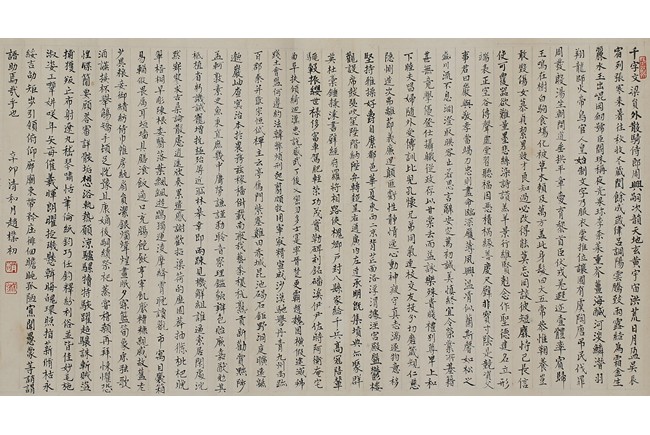 千字文 梁員外散騎侍郎周興嗣次韻天地玄黃宇宙洪荒日月盈昃辰
宿列張寒來暑往秋收冬藏閏餘成歲律呂調陽雲騰致雨露結為霜金生
麗水玉出崑岡劍號巨闕珠稱夜光果珍李柰菜重芥薑海鹹河淡鱗潛羽
翔龍師火帝鳥官人皇始制文字乃服衣裳推位讓國有虞陶唐弔民伐罪
周發殷湯坐朝問道垂拱平章愛育黎首臣伏戎羌遐邇壹體率賓歸
王鳴鳳在樹白駒食場化被草木賴及萬方蓋此身髮四大五常恭惟鞠養豈
敢毀傷女慕貞絜男效才良知過必改得能莫忘罔談彼短靡恃己長信
使可覆器欲難量墨悲絲染詩讚羔羊景行維賢剋念作聖德建名立形
端表正空谷傳聲虛堂習聽禍因惡積福緣善慶尺璧非寶寸陰是競資父
事君曰嚴與敬孝當竭力忠則盡命臨深履薄夙興溫凊似蘭斯馨如松之
盛川流不息淵澄取映容止若思言辭安定篤初誠美慎終宜令榮業所基籍
甚無竟學優登仕攝職從政存以甘棠去而益詠樂殊貴賤禮別尊卑上和
下睦夫唱婦隨外受傅訓比兒孔懷兄弟同氣連枝交友投分切磨箴規仁慈
隱惻造次弗離節義廉退顛沛匪虧性靜情逸心動神疲守真志滿逐物意移
堅持雅操好爵自縻都邑華夏東西二京背邙面洛浮渭據涇宮殿盤鬱樓
觀設席鼓瑟吹笙陞階納陛弁轉疑星右通廣內左達承明既集墳典亦聚群
英杜稾鍾隸漆書壁經府羅將相路俠槐卿戶封八縣家給千兵高冠陪輦
驅轂振纓世祿侈富車駕肥輕策功茂實勒碑刻銘磻溪伊尹佐時阿衡奄宅
曲阜扶傾綺迴漢惠說感武丁俊乂密勿多士寔寧晉楚更霸趙魏困橫假途滅虢
踐土會盟何遵約法韓弊煩刑起翦頗牧用軍最精宣威沙漠馳譽丹青九州禹跡
百郡秦并嶽宗恒岱禪主云亭鴈門紫塞雞田赤城昆池碣石鉅野洞庭曠遠緜
邈巖岫杳冥治本於農務茲稼穡俶載南畝我藝黍稷稅熟貢新勸賞黜陟
孟軻敦素史魚秉直庶幾中庸勞謙謹勅聆音察理鑑貌辨色貽厥嘉猷勉其
祗植省躬譏誡寵增抗極殆辱近恥林皋幸即兩疏見機解組誰逼索居閒處沈
默寂寥求古尋論散慮逍遙欣奏累遣慼謝歡招渠荷的歷園莽抽條枇杷晚
翠梧桐早凋陳根委翳落葉飄颻遊鵾獨運凌摩絳霄耽讀翫市寓目囊箱
易輶攸畏屬耳垣牆具膳湌飯適口充腸飽飫烹宰飢厭糟糠親戚故舊老
少異糧妾御績紡侍巾帷房紈扇圓潔銀燭煒煌晝眠夕寐藍筍象床弦歌
酒讌接杯舉觴矯手頓足悅豫且康嫡後嗣續祭祀蒸嘗稽顙再拜悚懼恐
惶牋牒簡要顧答審詳骸垢想浴執熱願涼驢騾犢特駭躍超驤誅斬賊盜
捕獲叛亡布射遼丸嵇琴阮嘯恬筆倫紙鈞巧任釣釋紛利俗竝皆佳妙毛施
淑姿工顰妍咲年矢每催羲暉朗曜琁璣懸斡晦魄環照指薪修祜永
綏吉劭矩步引領俯仰廊廟束帶矜庄徘徊瞻眺孤陋寡聞愚蒙等誚謂
語助焉哉乎也 辛卯清和月趙樸初